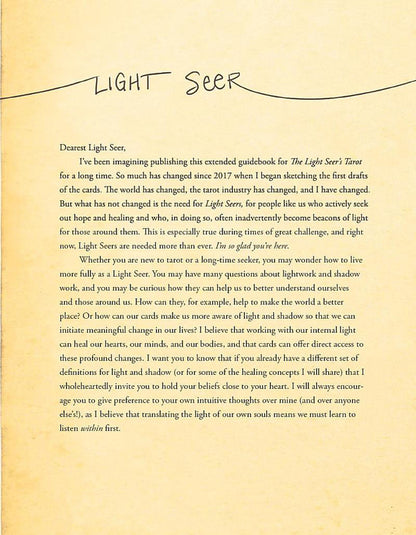 LIGHT SEER
Dearest Light Seer,
I've been imagining publishing this extended guidebook for The Light Seer's Tarot
for a long time. So much has changed since 2017 when I began sketching the first drafts
of the cards. The world has changed, the tarot industry has changed, and I have changed.
But what has not changed is the need for Light Seers, for people like us who actively seek
out hope and healing and who, in doing so, often inadvertently become beacons of light
for those around them. This is especially true during times of great challenge, and right
now, Light Seers are needed more than ever. I'm so glad you're here.
Whether you are new to tarot or a long-time seeker, you may wonder how to live
more fully as a Light Seer. You may have many questions about lightwork and shadow
work, and you may be curious how they can help us to better understand ourselves
and those around us. How can they, for example, help to make the world a better
place? Or how can our cards make us more aware of light and shadow so that we can
initiate meaningful change in our lives? I believe that working with our internal light
can heal our hearts, our minds, and our bodies, and that cards can offer direct access to
these profound changes. I want you to know that if you already have a different set of
definitions for light and shadow (or for some of the healing concepts I will share) that I
wholeheartedly invite you to hold your beliefs close to your heart. I will always encour-
age you to give preference to your own intuitive thoughts over mine (and over anyone
else's!), as I believe that translating the light of our own souls means we must learn to
listen within first.